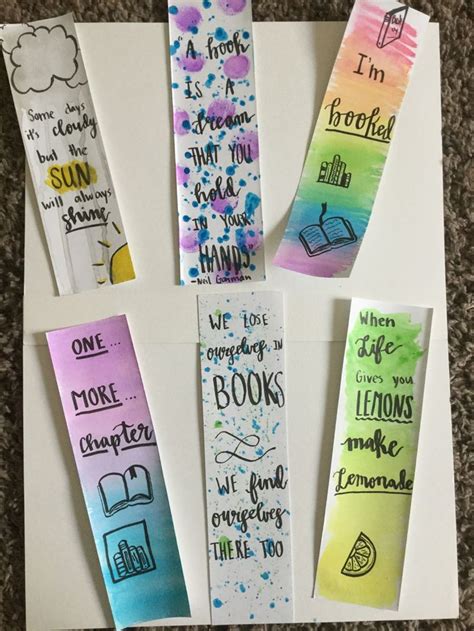 Some days
it's cloudy
but the
SUN
will always
shine
"A book
IS A
dream
THAT YOU
hold
IN YOUR
HANDS"
-Neil Gaiman
I'm
booked
ONE...
MORE...
chapter
WE LOSE
ourselves IN
BOOKS
WE find
ourselves
THERE TOO
When
Life
GIVES YOU
LEMONS
make
Lemonade